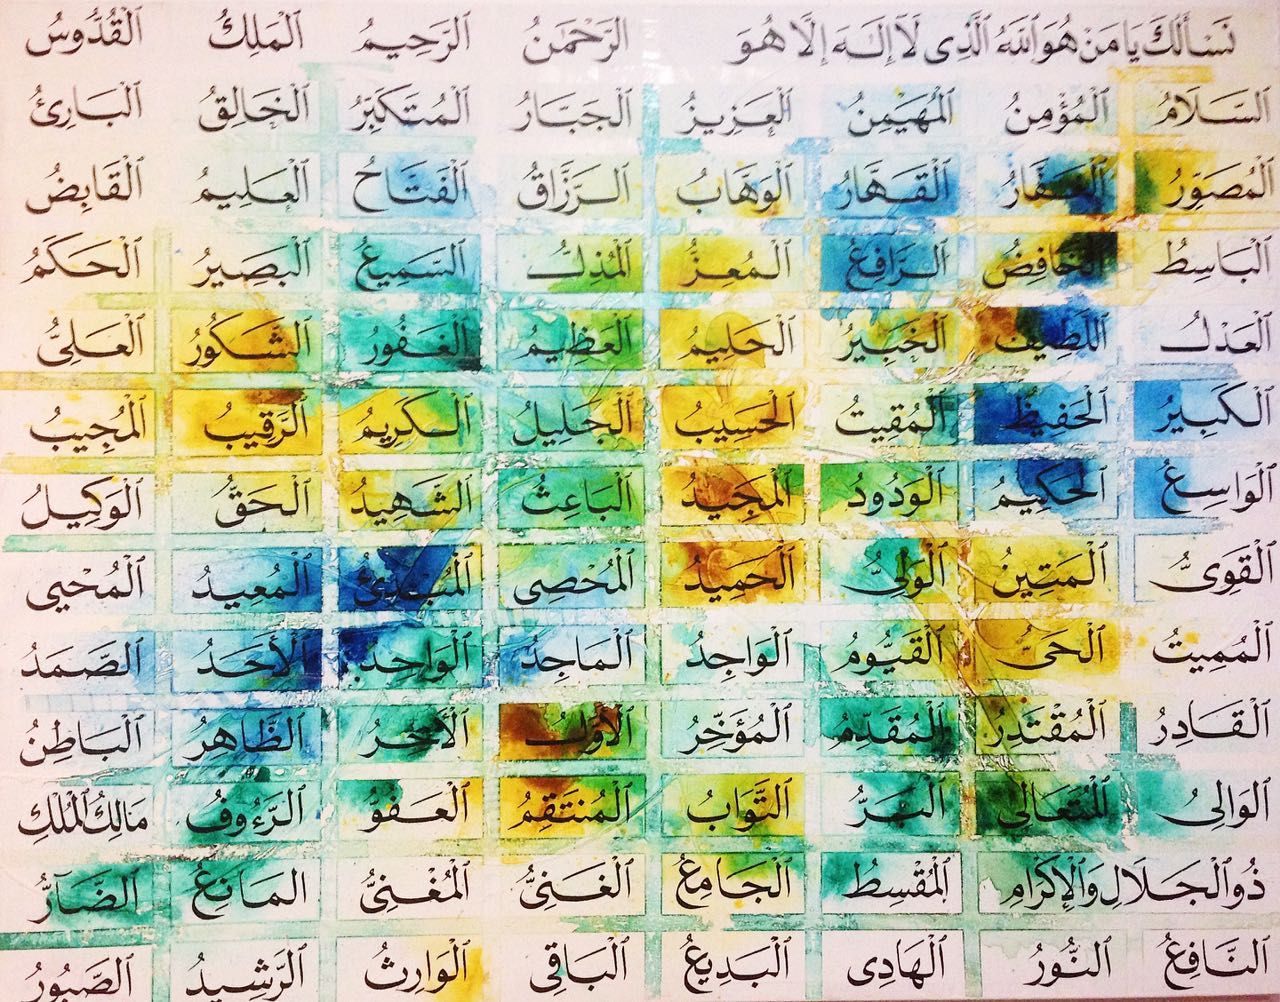 نَسْأَلُكَ يَا مَنْ هُوَ اللهُ الَّذِى لَا إِلٰهَ إِلَّا هُوَ الرَّحْمٰنُ الرَّحِيمُ الْمَلِكُ الْقُدُّوسُ
السَّلَامُ الْمُؤْمِنُ الْمُهَيْمِنُ الْعَزِيزُ الْجَبَّارُ الْمُتَكَبِّرُ الْخَالِقُ الْبَارِئُ
الْمُصَوِّرُ الْغَفَّارُ الْقَهَّارُ الْوَهَّابُ الرَّزَّاقُ الْفَتَّاحُ الْعَلِيمُ الْقَابِضُ
الْبَاسِطُ الْخَافِضُ الرَّافِعُ الْمُعِزُّ الْمُذِلُّ السَّمِيعُ الْبَصِيرُ الْحَكَمُ
الْعَدْلُ اللَّطِيفُ الْخَبِيرُ الْحَلِيمُ الْعَظِيمُ الْغَفُورُ الشَّكُورُ الْعَلِىُّ
الْكَبِيرُ الْحَفِيظُ الْمُقِيتُ الْحَسِيبُ الْجَلِيلُ الْكَرِيمُ الرَّقِيبُ الْمُجِيبُ
الْوَاسِعُ الْحَكِيمُ الْوَدُودُ الْمَجِيدُ الْبَاعِثُ الشَّهِيدُ الْحَقُّ الْوَكِيلُ
الْقَوِىُّ الْمَتِينُ الْوَلِىُّ الْحَمِيدُ الْمُحْصِى الْمُبْدِئُ الْمُعِيدُ الْمُحْيِى
الْمُمِيتُ الْحَىُّ الْقَيُّومُ الْوَاجِدُ الْمَاجِدُ الْوَاحِدُ الْأَحَدُ الصَّمَدُ
الْقَادِرُ الْمُقْتَدِرُ الْمُقَدِّمُ الْمُؤَخِّرُ الْأَوَّلُ الْآخِرُ الظَّاهِرُ الْبَاطِنُ
الْوَالِىُ الْمُتَعَالِى الْبَرُّ التَّوَّابُ الْمُنْتَقِمُ الْعَفُوُّ الرَّءُوفُ مَالِكُ الْمُلْكِ
ذُو الْجَلَالِ وَالْإِكْرَامِ الْمُقْسِطُ الْجَامِعُ الْغَنِىُّ الْمُغْنِىُّ الْمَانِعُ الضَّآرُّ
النَّافِعُ النُّورُ الْهَادِى الْبَدِيعُ الْبَاقِى الْوَارِثُ الرَّشِيدُ الصَّبُورُ